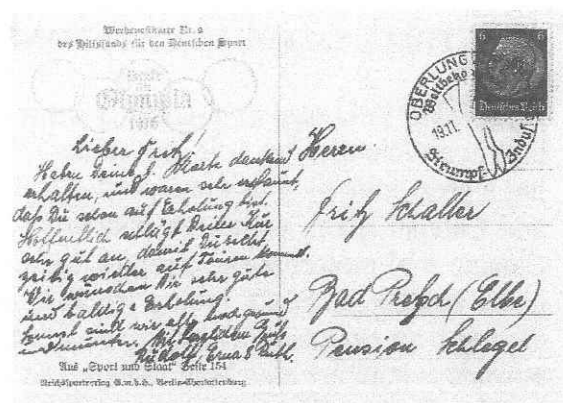 Werbepostkarte Nr. 2
des Hilfsfonds für den Deutschen Sport
Olympia
1936
Lieber Fritz!
Haben Deine l. Karte dankend
erhalten, und waren sehr erstaunt,
daß Du schon auf Erholung bist.
Hoffentlich schlägt Deine Kur
sehr gut an, damit Du recht
zeitig wieder auf Touren kommst.
Wir wünschen Dir sehr gute
und baldige Erholung.
sonst sind wir alle noch gesund
und munter. Mit Guß
Rudolf, Erna & Ruth.
Aus „Sport und Staat" Seite 154
Reichssportverlag G.m.b.H., Berlin-Charlottenburg
6 6
Deutsches Reich
OBERLUNG
19.11.
Strumpf- Indus
Herrn
Fritz Schaller
Bad Pretzsch (Elbe)
Pension Schlegel